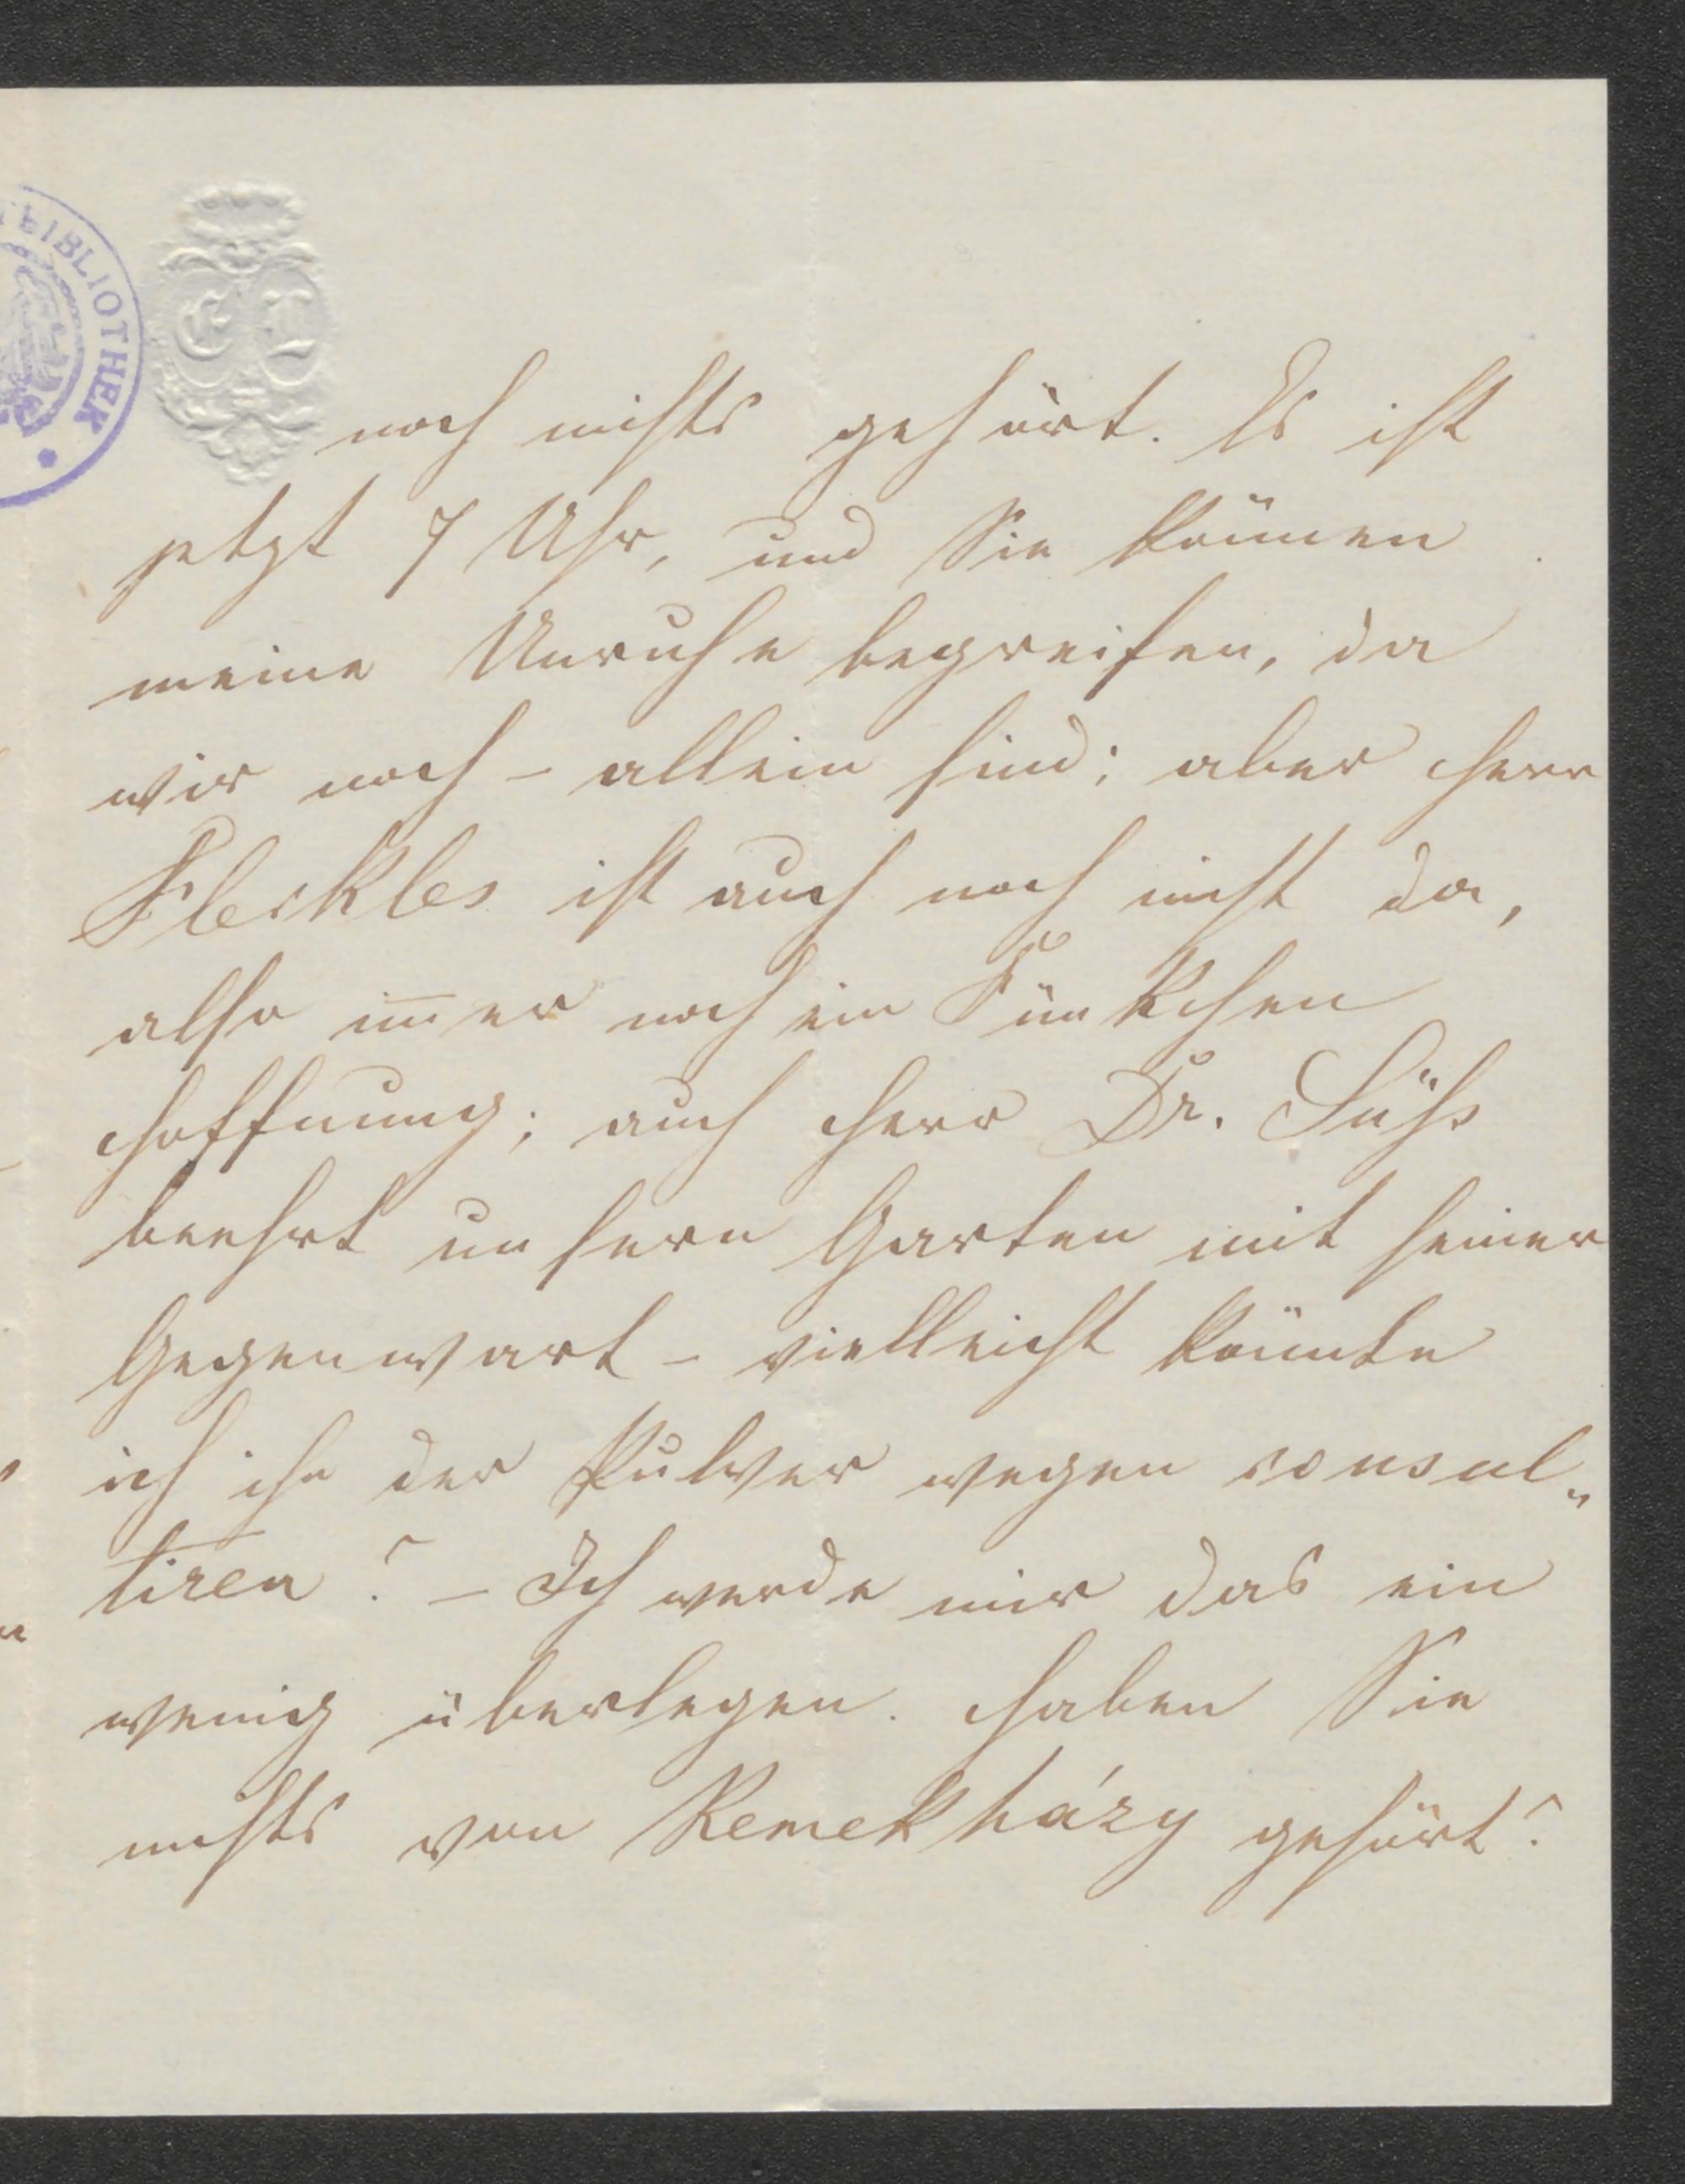 TBIBLIOTHEK
noch nichts gehört. Es ist
jetzt 7 Uhr, und Sie können
meine Unruhe begreifen, da
wir noch – allein sind; aber Herr
Fleckles ist auch noch nicht da,
also im̄er noch ein Fünkchen
Hoffnung; auch Herr Dr. Sühs
beehrt unsern Garten mit seiner
Gegenwart – vielleicht könnte
ich ihn der Pulver wegen consul„
tiren? – Ich werde mir das ein
wenig überlegen. Haben Sie
nichts von Remekházy gehört?